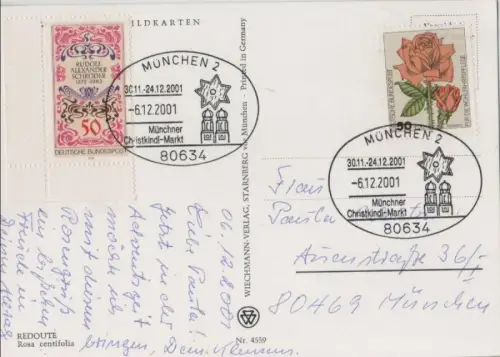 BILDKARTEN
RUDOLF
ALEXANDER
SCHRÖDER
1878-1962
50
DEUTSCHE BUNDESPOST
MÜNCHEN 2
30.11.-24.12.2001
-6.12.2001
Münchner
Christkindl-Markt
80634
DEUTSCHE BUNDESPOST
MÜNCHEN 2
30.11.-24.12.2001
-6.12.2001
Münchner
Christkindl-Markt
80634
WIECHMANN-VERLAG, STARNBERG bei München - Printed in Germany
06.12.2001
Liebe Paula!
Jetzt in der
Adventszeit
möchte ich
mit diesem
Rosengruß
ein bißchen
Freude in
Deinen Alltag
bringen, Dein
Frau
Paula
Auenstraße 36/
80469 München
REDOUTE
Rosa centifolia
Nr. 4559